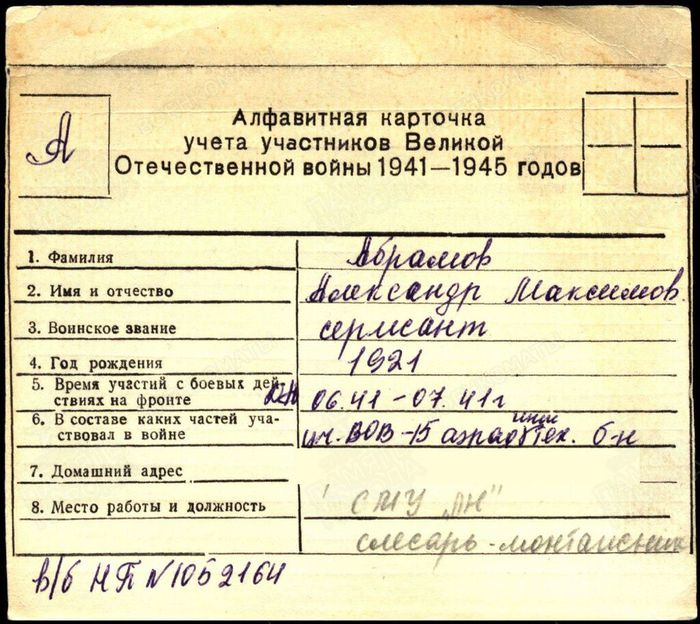 А
Алфавитная карточка
учета участников Великой
Отечественной войны 1941—1945 годов
1. Фамилия Абрамов
2. Имя и отчество Александр Максимов.
3. Воинское звание сержант
4. Год рождения 1921
5. Время участий с боевых дей-
ствиях на фронте 06.41-07.41г
6. В составе каких частей уча-
ствовал в войне уч. ВОВ-15 б-н
7. Домашний адрес
8. Место работы и должность СМУ
слесарь-монтажник
в/б НП N1052164